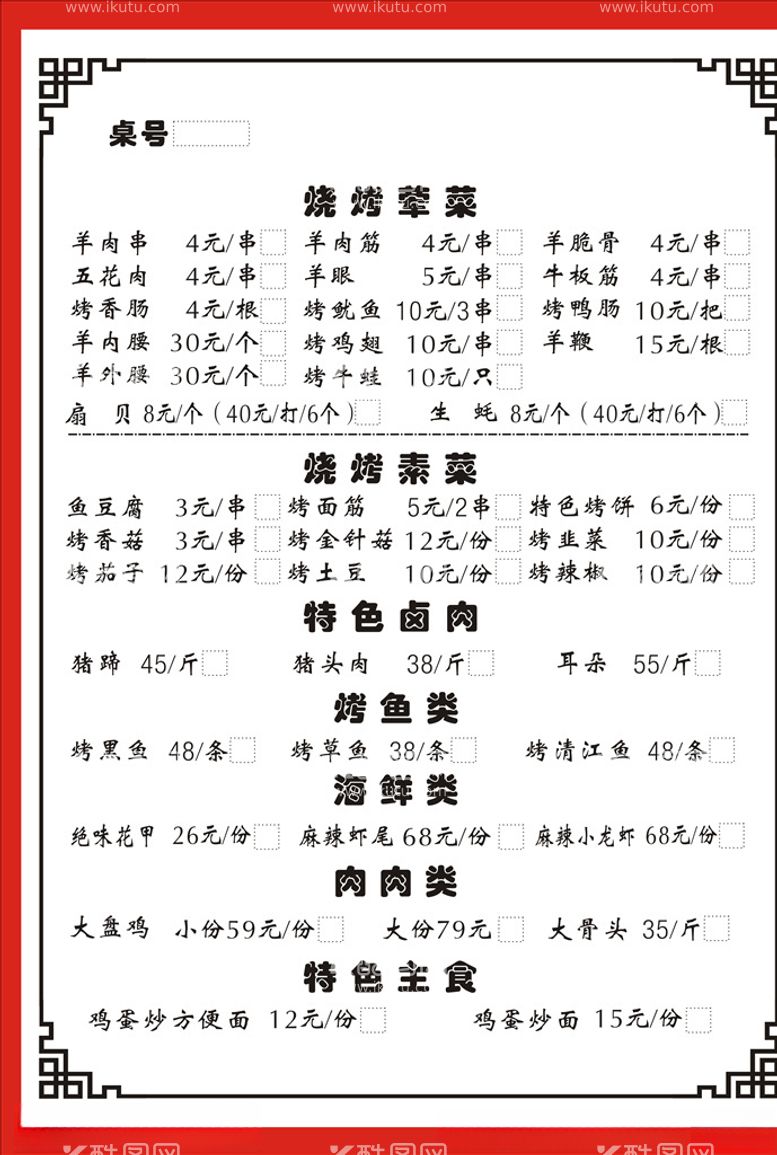 www.ikutu.com www.ikutu.com www.ikutu.com
桌号
烧烤荤菜
羊肉串 4元/串 羊肉筋 4元/串 羊脆骨 4元/串
五花肉 4元/串 羊眼 5元/串 牛板筋 4元/串
烤香肠 4元/根 烤鱿鱼 10元/3串 烤鸭肠 10元/把
羊内腰 30元/个 烤鸡翅 10元/串 羊鞭 15元/根
羊外腰 30元/个 烤牛蛙 10元/只
扇 贝 8元/个(40元/打/6个) 生 蚝 8元/个(40元/打/6个)
烧烤素菜
鱼豆腐 3元/串 烤面筋 5元/2串 特色烤饼 6元/份
烤香菇 3元/串 烤金针菇 12元/份 烤韭菜 10元/份
烤茄子 12元/份 烤土豆 10元/份 烤辣椒 10元/份
特色卤肉
猪蹄 45/斤 猪头肉 38/斤 耳朵 55/斤
烤鱼类
烤黑鱼 48/条 烤草鱼 38/条 烤清江鱼 48/条
海鲜类
绝味花甲 26元/份 麻辣虾尾 68元/份 麻辣小龙虾 68元/份
肉肉类
大盘鸡 小份59元/份 大份79元 大骨头 35/斤
特色主食
鸡蛋炒方便面 12元/份 鸡蛋炒面 15元/份